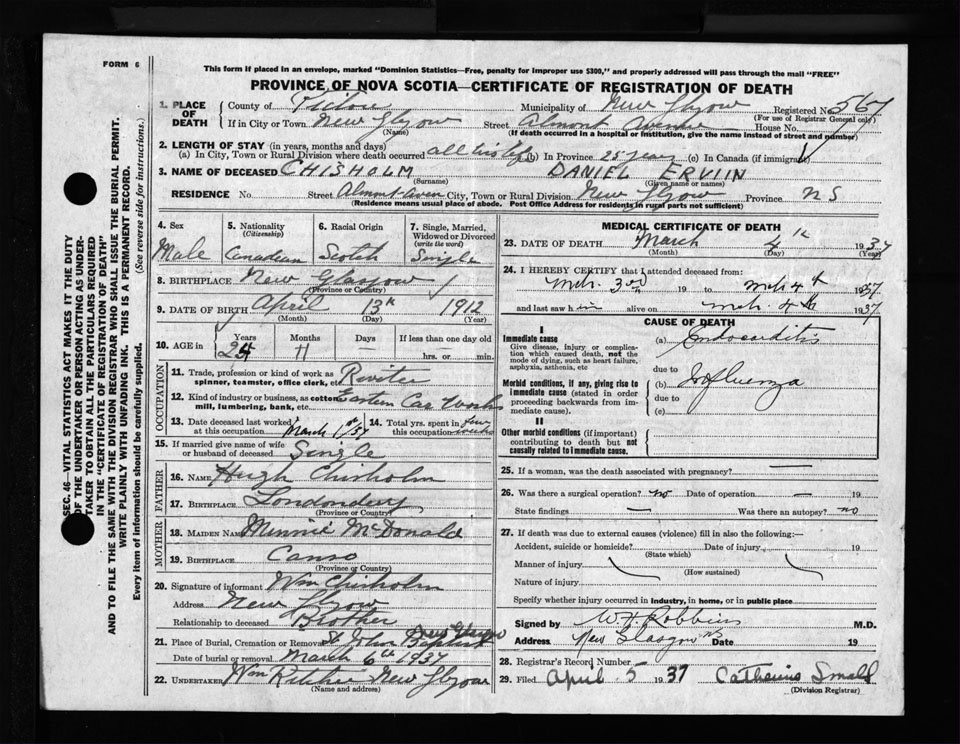 FORM 6
This form if placed in an envelope, marked "Dominion Statistics—Free, penalty for improper use $300," and properly addressed will pass through the mail "FREE"
PROVINCE OF NOVA SCOTIA—CERTIFICATE OF REGISTRATION OF DEATH
1. PLACE OF DEATH
County of Pictou Municipality of New Glasgow Registered No. 567
(For use of Registrar General only)
If in City or Town New Glasgow Street Almont Avenue House No.
(Name) (If death occurred in a hospital or institution, give the name instead of street and number)
2. LENGTH OF STAY (in years, months and days)
(a) In City, Town or Rural Division where death occurred all his life (b) In Province 25 years (c) In Canada (if immigrant)
3. NAME OF DECEASED CHISHOLM DANIEL ERVIIN
(Surname) (Given name or names)
RESIDENCE No. Street Almont Aven City, Town or Rural Division New Glasgow Province N S
(Residence means usual place of abode. Post Office Address for residents in rural parts not sufficient)
4. Sex Male
5. Nationality (Citizenship) Canadian
6. Racial Origin Scotch
7. Single, Married, Widowed or Divorced (write the word) Single
8. BIRTHPLACE New Glasgow
(Province or Country)
9. DATE OF BIRTH April 13th 1912
(Month) (Day) (Year)
10. AGE in Years Months Days If less than one day old
24 11 — hrs. or min.
OCCUPATION
11. Trade, profession or kind of work as spinner, teamster, office clerk, etc. Riviter
12. Kind of industry or business, as cotton mill, lumbering, bank, etc. Eastern Car Works
13. Date deceased last worked at this occupation March 1st/37
14. Total yrs. spent in this occupation few weeks
15. If married give name of wife or husband of deceased Single
FATHER
16. NAME Hugh Chisholm
17. BIRTHPLACE Londondery
(Province or Country)
MOTHER
18. MAIDEN NAME Minnie McDonald
19. BIRTHPLACE Canso
(Province or Country)
20. Signature of informant Wm Chisholm
Address New Glasgow
Relationship to deceased Brother
21. Place of Burial, Cremation or Removal St John Baptist New Glasgow
Date of burial or removal March 6th 1937
22. UNDERTAKER Wm Ritchie New Glasgow
(Name and address)
MEDICAL CERTIFICATE OF DEATH
23. DATE OF DEATH March 4th 1937
(Month) (Day) (Year)
24. I HEREBY CERTIFY that I attended deceased from:
Mch. 3rd 19 to Mch 4th 1937
and last saw h im alive on Mch 4th 1937
CAUSE OF DEATH
I
Immediate cause
Give disease, injury or complication which caused death, not the mode of dying, such as heart failure, asphyxia, asthenia, etc
(a) Endocarditis
due to
Morbid conditions, if any, giving rise to immediate cause (stated in order proceeding backwards from immediate cause).
(b) Influenza
due to
(c)
II
Other morbid conditions (if important) contributing to death but not causally related to immediate cause.
25. If a woman, was the death associated with pregnancy? —
26. Was there a surgical operation? no Date of operation — 19
State findings — Was there an autopsy? no
27. If death was due to external causes (violence) fill in also the following:—
Accident, suicide or homicide? Date of injury 19
(State which)
Manner of injury
(How sustained)
Nature of injury
Specify whether injury occurred in industry, in home, or in public place
Signed by W. F. Robbins M.D.
Address New Glasgow NS Date 19
28. Registrar's Record Number
29. Filed April 5 1937 Catherine Small
(Division Registrar)
SEC. 46—VITAL STATISTICS ACT MAKES IT THE DUTY
OF THE UNDERTAKER OR PERSON ACTING AS UNDERTAKER TO OBTAIN ALL THE PARTICULARS REQUIRED
IN THE "CERTIFICATE OF REGISTRATION OF DEATH"
AND TO FILE THE SAME WITH THE DIVISION REGISTRAR WHO SHALL ISSUE THE BURIAL PERMIT.
WRITE PLAINLY WITH UNFADING INK. THIS IS A PERMANENT RECORD.
Every item of information should be carefully supplied. (See reverse side for instructions.)